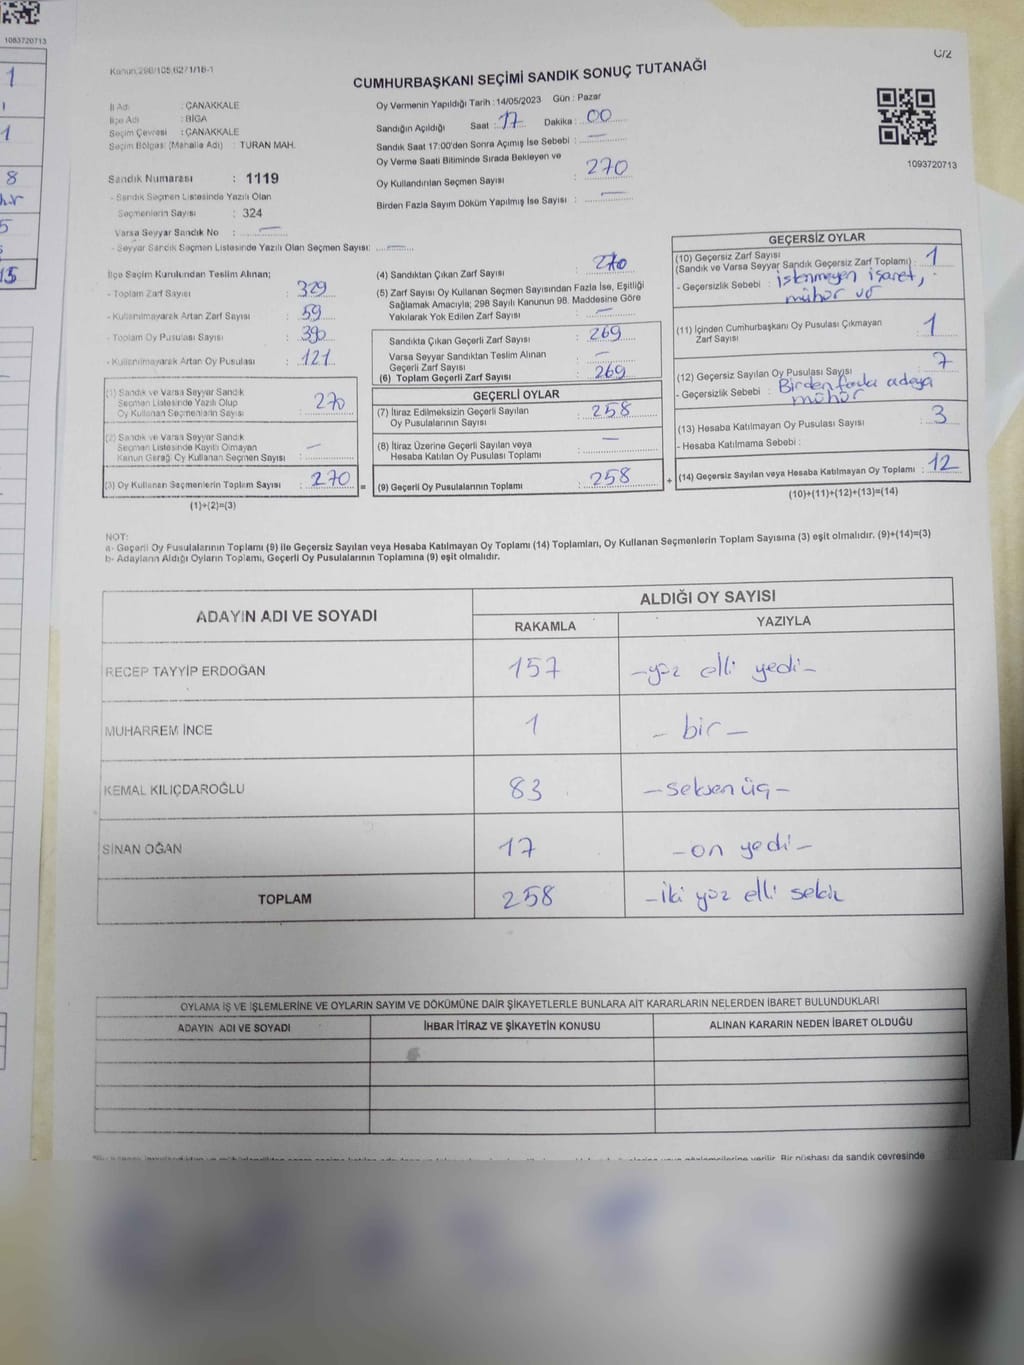 1083720713
1
1
8
5
15
Kanun,298/105,6271/18-1
C/2
CUMHURBAŞKANI SEÇİMİ SANDIK SONUÇ TUTANAĞI
İl Adı : ÇANAKKALE
İlçe Adı : BİGA
Seçim Çevresi : ÇANAKKALE
Seçim Bölgesi (Mahalle Adı) : TURAN MAH.
Sandık Numarası : 1119
- Sandık Seçmen Listesinde Yazılı Olan
Seçmenlerin Sayısı : 324
Varsa Seyyar Sandık No : —
- Seyyar Sandık Seçmen Listesinde Yazılı Olan Seçmen Sayısı: —
Oy Vermenin Yapıldığı Tarih : 14/05/2023 Gün : Pazar
Sandığın Açıldığı Saat : 17 Dakika : 00
Sandık Saat 17:00'den Sonra Açımış İse Sebebi : —
Oy Verme Saati Bitiminde Sırada Bekleyen ve
Oy Kullandırılan Seçmen Sayısı : 270
Birden Fazla Sayım Döküm Yapılmış İse Sayısı : —
1093720713
İlçe Seçim Kurulundan Teslim Alınan;
- Toplam Zarf Sayısı : 329
- Kullanılmayarak Artan Zarf Sayısı : 59
- Toplam Oy Pusulası Sayısı : 390
- Kullanılmayarak Artan Oy Pusulası : 121
(1) Sandık ve Varsa Seyyar Sandık
Seçmen Listesinde Yazılı Olup
Oy Kullanan Seçmenlerin Sayısı : 270
(2) Sandık ve Varsa Seyyar Sandık
Seçmen Listesinde Kayıtlı Olmayan
Kanun Gereği Oy Kullanan Seçmen Sayısı : —
(3) Oy Kullanan Seçmenlerin Toplam Sayısı : 270 =
(1)+(2)=(3)
(4) Sandıktan Çıkan Zarf Sayısı : 270
(5) Zarf Sayısı Oy Kullanan Seçmen Sayısından Fazla İse, Eşitliği
Sağlamak Amacıyla; 298 Sayılı Kanunun 98. Maddesine Göre
Yakılarak Yok Edilen Zarf Sayısı : —
Sandıkta Çıkan Geçerli Zarf Sayısı : 269
Varsa Seyyar Sandıktan Teslim Alınan
Geçerli Zarf Sayısı : —
(6) Toplam Geçerli Zarf Sayısı : 269
GEÇERLİ OYLAR
(7) İtiraz Edilmeksizin Geçerli Sayılan
Oy Pusulalarının Sayısı : 258
(8) İtiraz Üzerine Geçerli Sayılan veya
Hesaba Katılan Oy Pusulası Toplamı : —
(9) Geçerli Oy Pusulalarının Toplamı : 258 +
GEÇERSİZ OYLAR
(10) Geçersiz Zarf Sayısı
(Sandık ve Varsa Seyyar Sandık Geçersiz Zarf Toplamı) : 1
- Geçersizlik Sebebi : istenmeyen işaret,
mühür vs
(11) İçinden Cumhurbaşkanı Oy Pusulası Çıkmayan
Zarf Sayısı : 1
(12) Geçersiz Sayılan Oy Pusulası Sayısı : 7
- Geçersizlik Sebebi : Birden fazla adaya
mühür
(13) Hesaba Katılmayan Oy Pusulası Sayısı : 3
- Hesaba Katılmama Sebebi :
(14) Geçersiz Sayılan veya Hesaba Katılmayan Oy Toplamı : 12
(10)+(11)+(12)+(13)=(14)
NOT:
a- Geçerli Oy Pusulalarının Toplamı (9) ile Geçersiz Sayılan veya Hesaba Katılmayan Oy Toplamı (14) Toplamları, Oy Kullanan Seçmenlerin Toplam Sayısına (3) eşit olmalıdır. (9)+(14)=(3)
b- Adayların Aldığı Oyların Toplamı, Geçerli Oy Pusulalarının Toplamına (9) eşit olmalıdır.
ADAYIN ADI VE SOYADI
ALDIĞI OY SAYISI
RAKAMLA YAZIYLA
RECEP TAYYİP ERDOĞAN 157 -yüz elli yedi-
MUHARREM İNCE 1 - bir -
KEMAL KILIÇDAROĞLU 83 -seksen üç-
SİNAN OĞAN 17 -on yedi-
TOPLAM 258 -iki yüz elli sekiz
OYLAMA İŞ VE İŞLEMLERİNE VE OYLARIN SAYIM VE DÖKÜMÜNE DAİR ŞİKAYETLERLE BUNLARA AİT KARARLARIN NELERDEN İBARET BULUNDUKLARI
ADAYIN ADI VE SOYADI İHBAR İTİRAZ VE ŞİKAYETİN KONUSU ALINAN KARARIN NEDEN İBARET OLDUĞU
verilir. Bir nüshası da sandık çevresinde